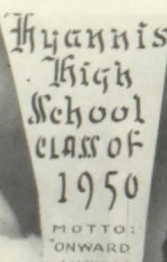 Hyannis
High
School
CLASS OF
1950
MOTTO:
"ONWARD